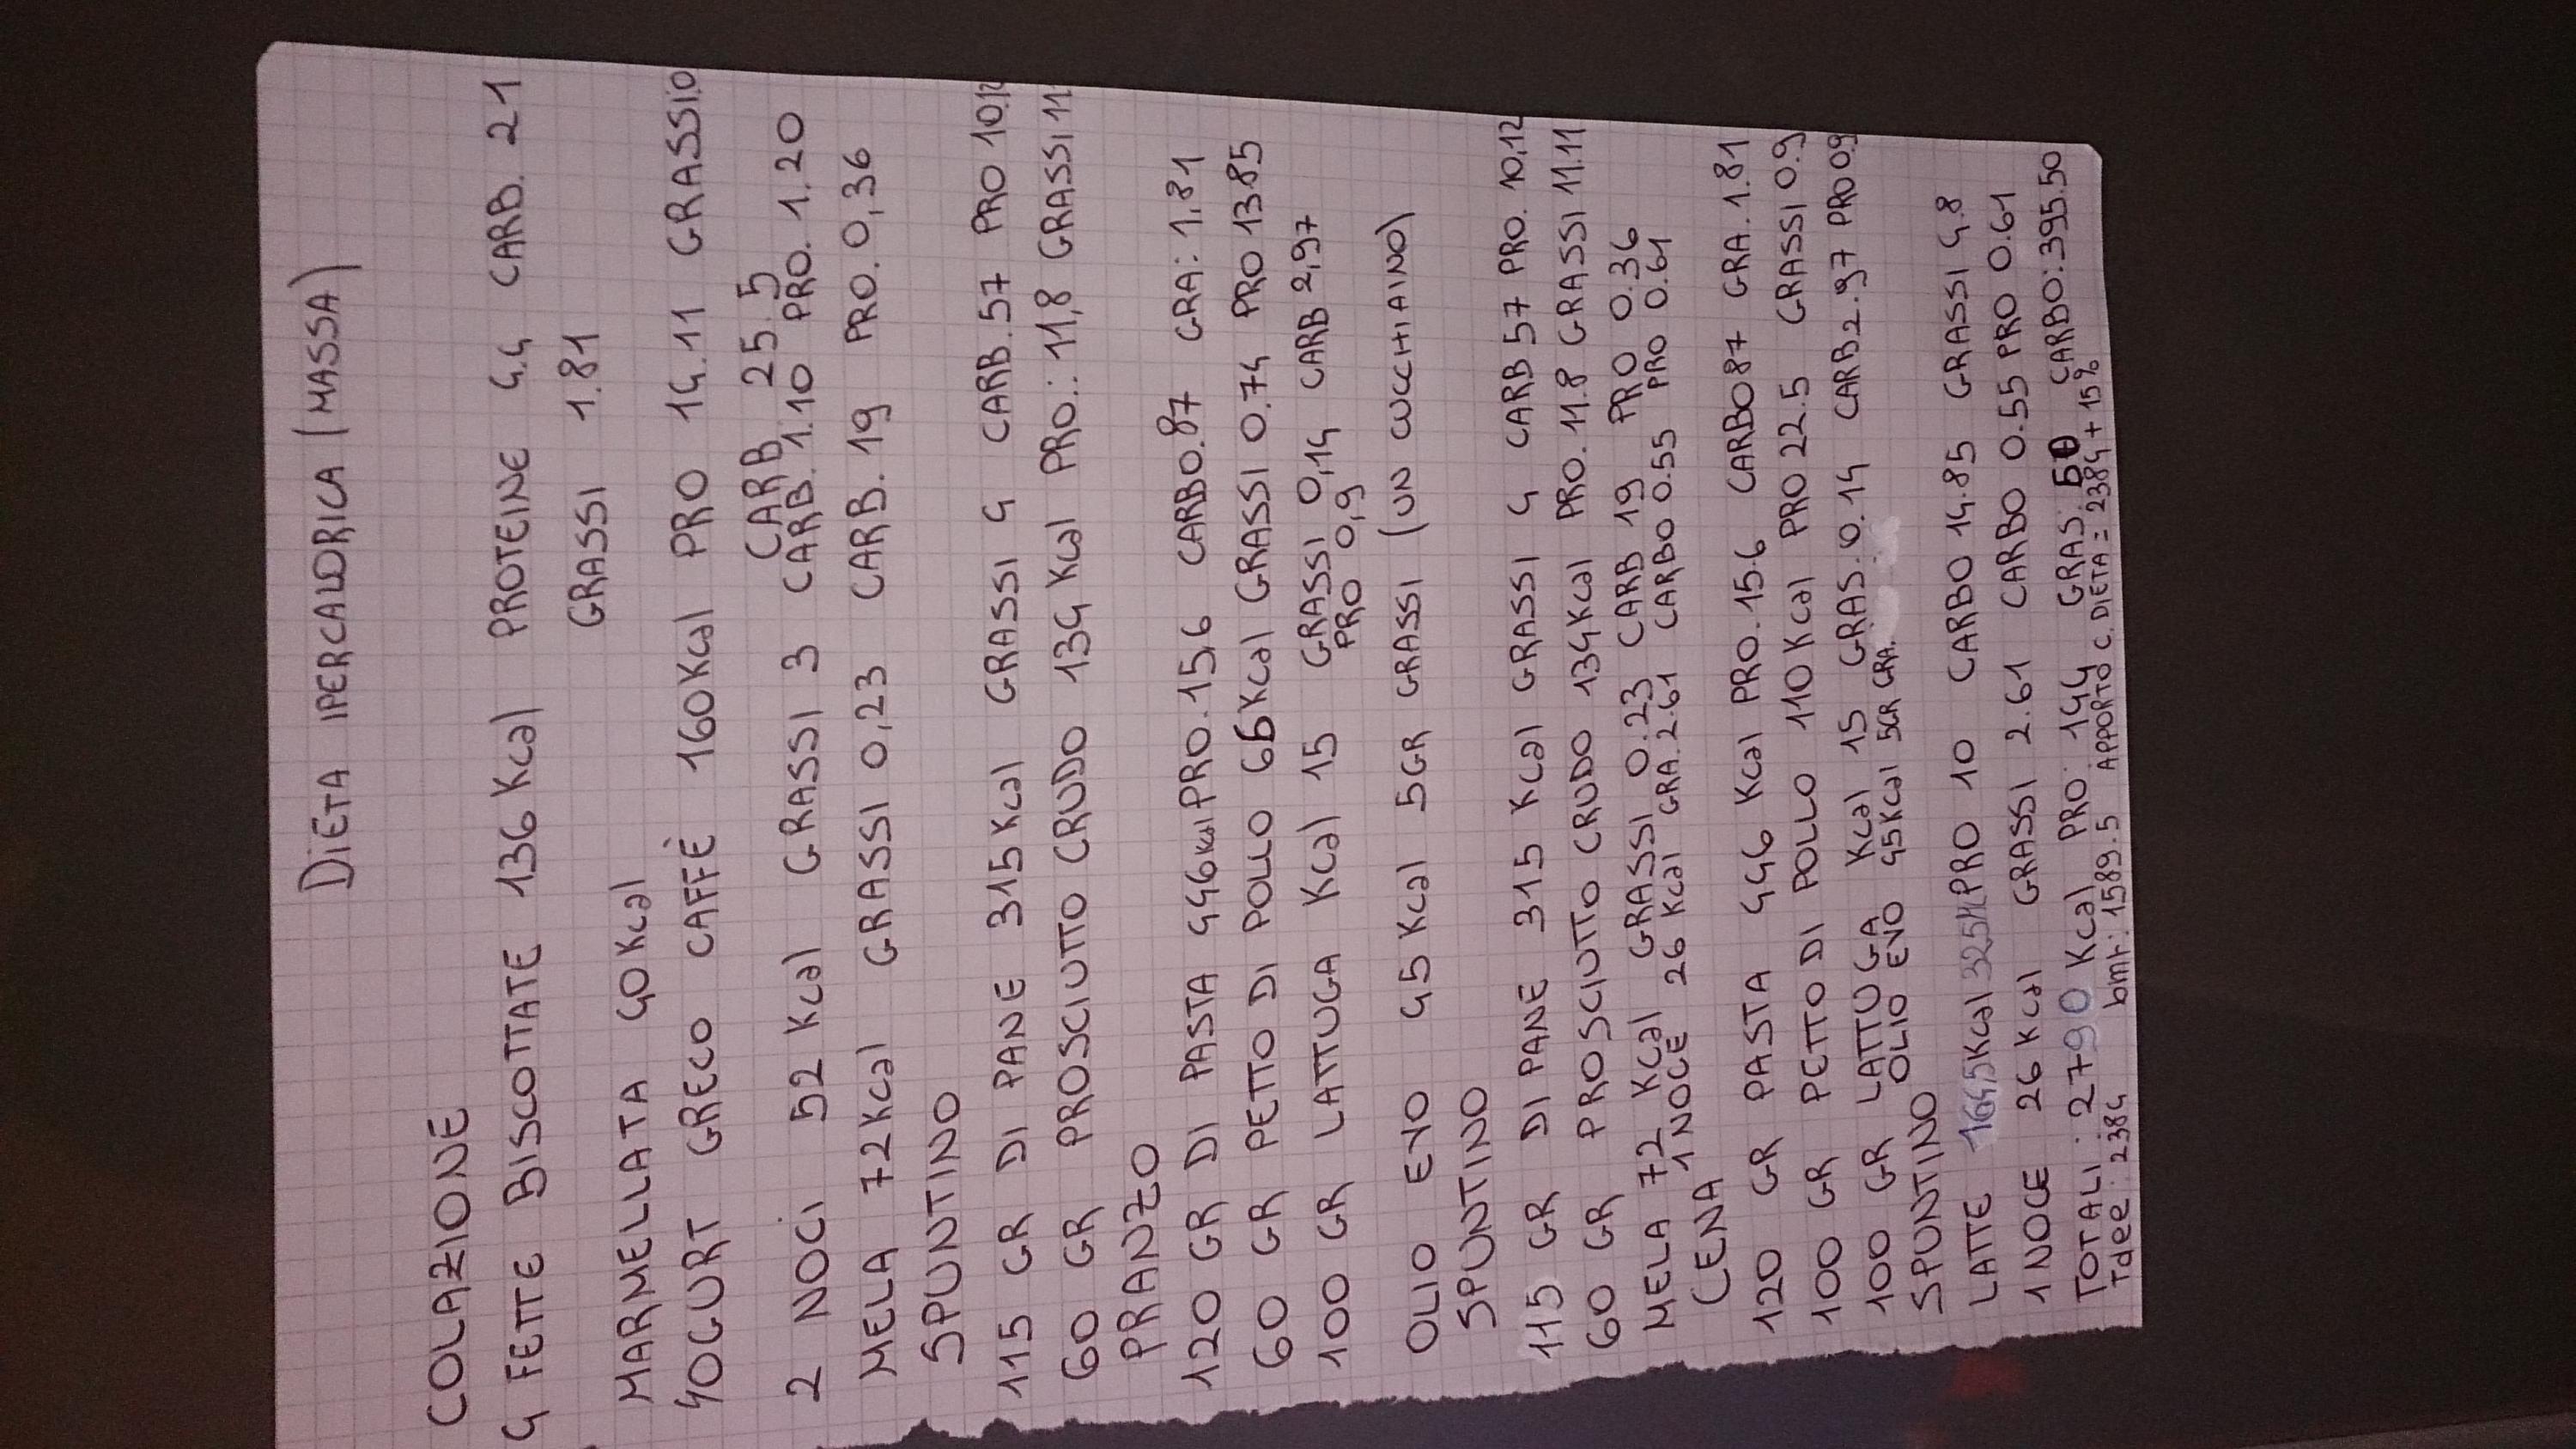 DIETA IPERCALORICA (MASSA)
COLAZIONE
4 FETTE BISCOTTATE 136 Kcal PROTEINE 4.4 CARB. 21
GRASSI 1.81
MARMELLATA 40 Kcal
YOGURT GRECO CAFFÈ 160 Kcal PRO 14.11 GRASSI 0
CARB 25.5
2 NOCI 52 Kcal GRASSI 3 CARB. 1.10 PRO. 1.20
MELA 72 Kcal GRASSI 0,23 CARB. 19 PRO. 0,36
SPUNTINO
115 GR DI PANE 315 Kcal GRASSI 4 CARB. 57 PRO 10,12
60 GR PROSCIUTTO CRUDO 134 Kcal PRO.: 11,8 GRASSI 11
PRANZO
120 GR DI PASTA 446 Kcal PRO. 15,6 CARBO. 87 GRA: 1,81
60 GR PETTO DI POLLO 66 Kcal GRASSI 0.74 PRO 13.85
100 GR LATTUGA Kcal 15 GRASSI 0,14 CARB 2,97
PRO 0,9
OLIO EVO 45 Kcal 5GR GRASSI (UN CUCCHIAINO)
SPUNTINO
115 GR DI PANE 315 Kcal GRASSI 4 CARB 57 PRO. 10,12
60 GR PROSCIUTTO CRUDO 134 Kcal PRO. 11.8 GRASSI 11.11
MELA 72 Kcal GRASSI 0.23 CARB 19 PRO 0.36
1 NOCE 26 Kcal GRA. 2.61 CARBO 0.55 PRO 0.61
CENA
120 GR PASTA 446 Kcal PRO. 15.6 CARBO 87 GRA. 1.81
100 GR PETTO DI POLLO 110 Kcal PRO 22.5 GRASSI 0.9
100 GR LATTUGA Kcal 15 GRAS. 0.14 CARB 2.97 PRO 0.9
OLIO EVO 45 Kcal 5GR GRA.
SPUNTINO
LATTE 164,5 Kcal PRO 10 CARBO 14.85 GRASSI 4.8
1 NOCE 26 Kcal GRASSI 2.61 CARBO 0.55 PRO 0.61
TOTALI: 2790 Kcal PRO: 144 GRAS: 50 CARBO: 395.50
Tdee: 2384 bmr: 1589.5 APPORTO C. DIETA = 2384 + 15%